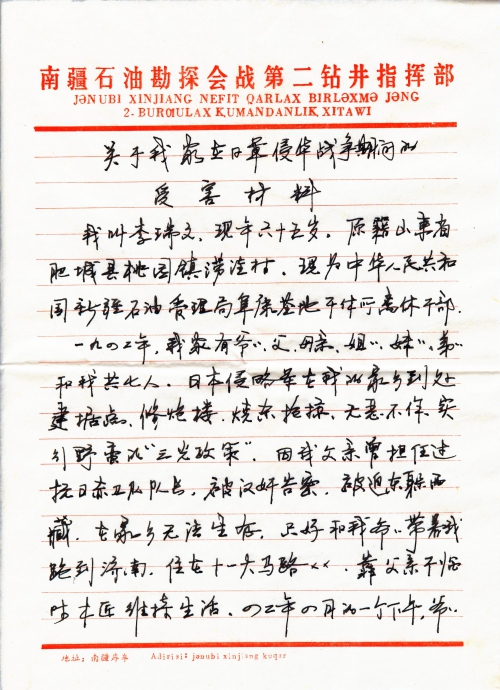 南疆石油勘探会战第二钻井指挥部
JƏNUBI XINJIANG NEFIT QARLAX BIRLƏXMƏ JƏNG
2-BURƢULAX KUMANDANLIK XITAWI
关于我家在日军侵华战争期间的
受害材料
我叫李瑞文，现年六十五岁。原籍山东省
肥城县桃园镇涝洼村，现为中华人民共和
国新疆石油管理局阜康基地干休所离休干部。
一九四二年，我家有爷〃、父、母亲、姐〃、妹〃、弟〃
和我共七人。日本侵略军在我的家乡到处
建据点、修炮楼、烧杀抢掠，无恶不作，实
行野蛮的“三光政策”。因我父亲曾担任过
抗日自卫队队长，被汉奸告密，被迫东躲西
藏，在家乡无法生存，只好和我爷〃带着我
跑到济南，住在十一大马路××，靠父亲干
木匠维持生活。四二年四月的一个下午，爷〃
地址：南疆库车 Adirisi: jənubi xinjiang kuqər